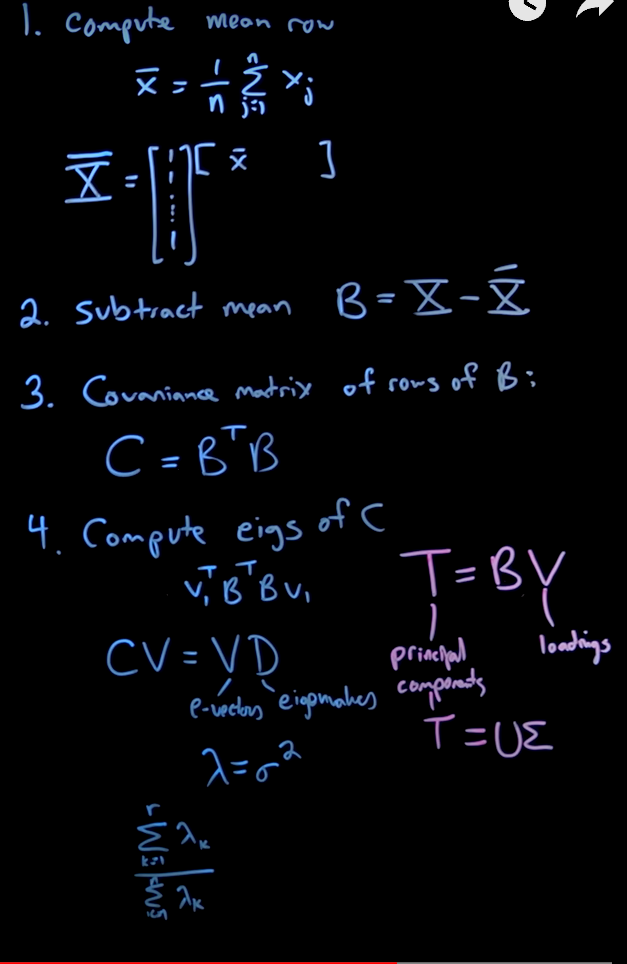 1. Compute mean row
x̄ = 1/n Σ_{j=1}^{n} x_j
X̄ = [1 ⋮ 1] [ x̄ ]
2. Subtract mean B = X - X̄
3. Covariance matrix of rows of B:
C = BᵀB
4. Compute eigs of C
v₁ᵀBᵀBv₁
CV = VD
e-vectors eigenvalues
λ = σ²
Σ_{k=1}^{r} λ_k
Σ λ_k
T = BV
principal components
loadings
T = UΣ